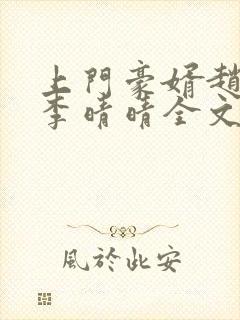 上門豪婿趙
李晴晴全文
風於此安